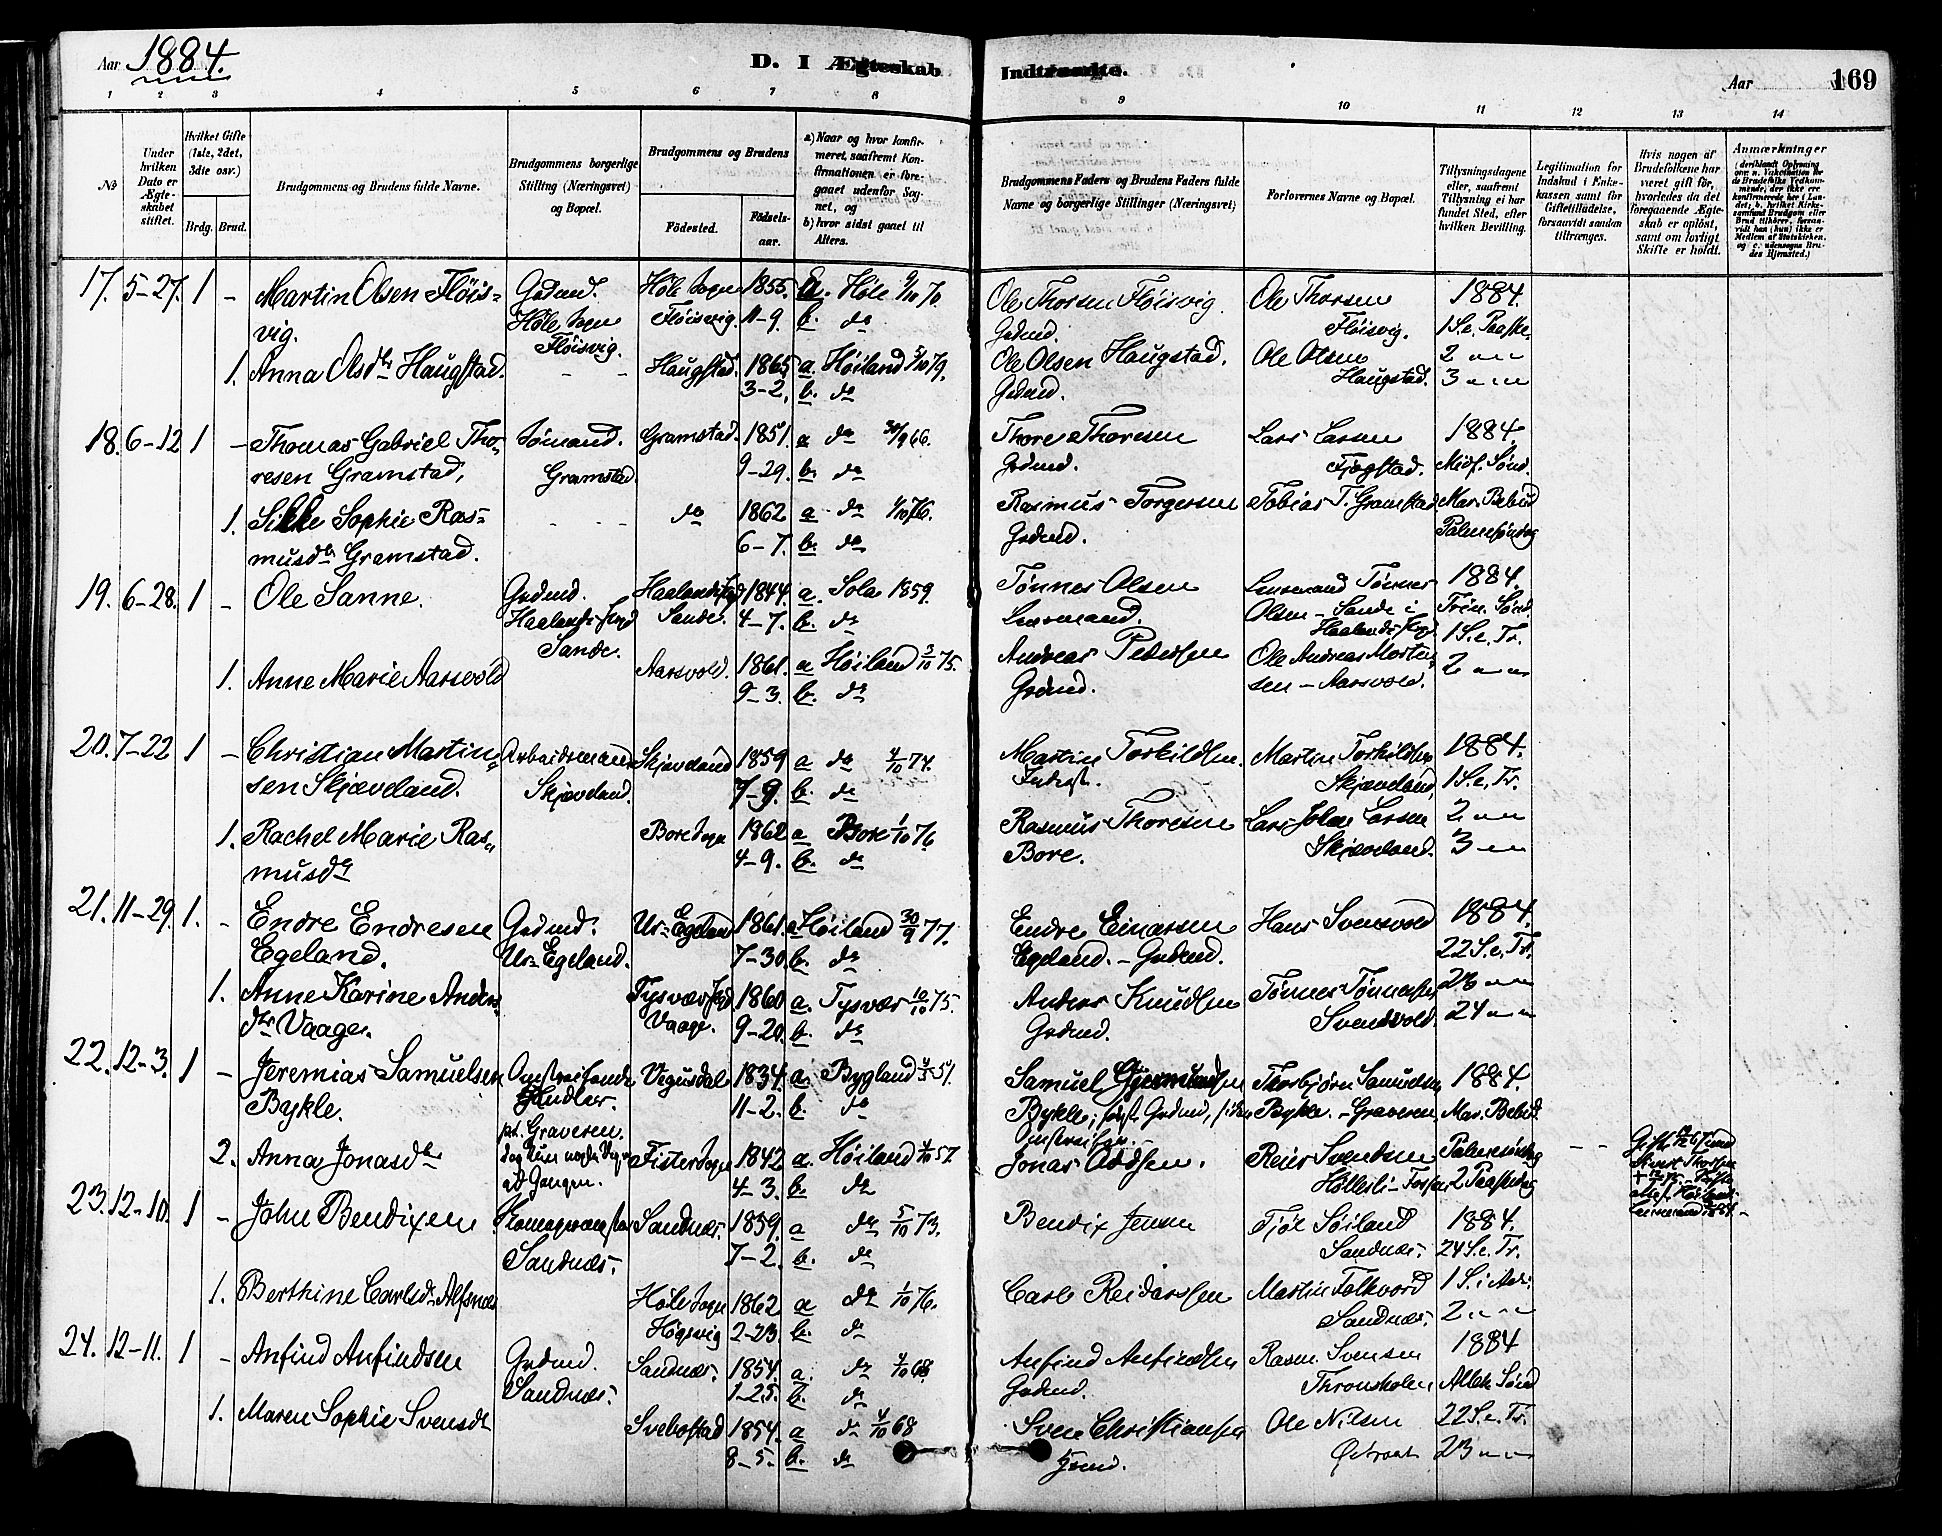 Aar 1884.
D. I Ægteskab Indtraadte.
Aar 169
1 2 3 4 5 6 7 8 9 10 11 12 13 14
No
Under hvilken Dato er Ægteskabet stiftet.
Hvilket Gifte (1ste, 2det, 3die osv.)
Brdg. Brud.
Brudgommens og Brudens fulde Navne.
Brudgommens borgerlige Stilling (Næringsvei) og Bopæl.
Brudgommens og Brudens
Fødested.
Fødselsaar.
a) Naar og hvor konfirmeret, saafremt Konfirmationen er foregaaet udenfor Sognet, og
b) hvor sidst gaaet til Alters.
Brudgommens Faders og Brudens Faders fulde Navne og borgerlige Stillinger (Næringsvei)
Forlovernes Navne og Bopæl.
Tillysningsdagene eller, saafremt Tillysning ei har fundet Sted, efter hvilken Bevilling.
Legitimation for Indskud i Enkekassen samt for Giftetilladelse, forsaavidt saadan tiltrænges.
Hvis nogen af Brudefolkene har været gift før, hvorledes da det foregaaende Ægteskab er opløst, samt om lovligt Skifte er holdt.
Anmærkninger
17. 5-27. 1 - Martin Olsen Fløis- Gdmd. Høle Sogn 1855 a. Høle 9/10 70. Ole Thorsen Fløisvig. Ole Thorsen 1884.
vig. Høle Sogn Fløisvig. 11-9. b. do Gdmd. Fløisvig. 1 S. e. Paaske
Fløisvig.
1. Anna Olsdtr Haugstad. - - Haugstad. 1865 a. Høiland 5/10 79. Ole Olsen Haugstad. Ole Olsen 2 " "
3-2. b. do Gdmd. Haugstad. 3 " "
18. 6-12 1 - Thomas Gabriel Tho- Sømand. Gramstad. 1851. a do 30/9 66. Thore Thoresen Lars Larsen 1884.
resen Gramstad, Gramstad 9-29. b. do Gdmd. Fjogstad. Midf. Sønd.
1. Silke Sophie Ras- - - - do 1862 a do 1/10 76. Rasmus Torgersen Tobias T. Gramstad Mar. Bebud
musdtr Gramstad. 6-7. b. do Gdmd. Palmesøndag
19. 6-28. 1 - Ole Sanne. Gdmd. Haalands Sogn 1844. a. Sola 1859. Tønnes Olsen Lensmand Tønnes 1884.
Haalands Sogn Sande. 4-7. b. do Lensmand. Olsen - Sande i Trin. Sønd.
Sande. Haalands Sogn. 1 S. e. Tr.
1. Anne Marie Aarsvold Aarsvold. 1861. a Høiland 3/10 75. Andreas Pedersen Ole Andreas Morten- 2 " "
9-3. b. do Gdmd. sen - Aarsvold.
20. 7-22 1 - Christian Martin- Arbeidsmand Skjæveland 1859 a do 4/10 74. Martin Torkildsen. Martin Torkildsen 1884.
sen Skjæveland. Skjæveland. 7-9. b. do Inderst. Skjæveland, 1 S. e. Tr.
1. Rachel Marie Ras- Bore Sogn 1862 a Bore 1/10 76 Rasmus Thoresen Lars Johan Larsen 2 " "
musdtr 4-9. b. do Bore. Skjæveland. 3 " "
21. 11-29. 1. - Endre Endresen Gdmd. Ur-Egeland 1861. a Høiland 30/9 77. Endre Einarsen Hans Svensvold 1884.
Egeland. Ur-Egeland. 7-30. b. do Egeland. - Gdmd. 22 S. e. Tr.
1. Anne Karine Anders Tysvær 1860 a. Tysvær 10/10 75. Anders Knudsen Tønnes Tønnessen 23 " "
dtr Vaage. Vaage. 9-20. b. do Gdmd. Svendsvold. 24 " "
22. 12-3. 1 - Jeremias Samuelsen Omstreifende Vegusdal 1834. a. Bygland 51. Samuel Thorbjørn Samuelsen 1884.
Bykle. Handler. 11-2. b. do Bykle; først Gdmd, siden Bykle. - Graveren, Mar. Bebud.
pt. Graveren. Omstreifer.
2. Anna Jonasdtr Fister Sogn 1842 a. Høiland 4/10 57. Jonas Oddsen. Reier Svendsen Palmesøndag
4-3. b. do Høllesli - Fossan 2 Paaskedag
23. 12-10. 1 - John Bendixen Sandnæs. 1859. a do 5/10 73. Bendix Jensen Tjøl Søiland 1884.
Sandnæs. 7-2. b. do Sandnæs. 24 S. e. Tr.
1. Berthine Carlsdtr Alfsnæs Høle Sogn 1862 a do 1/10 76. Carl Reidarssen Martin Folkvord 1 S. i Adv.
Høgsvig 2-23. b. do Sandnæs. 2 " "
24. 12-11. 1 - Anfind Anfindsen Gdmd. Sandnæs. 1854. a. do 4/10 68. Anfind Anfindsen Rasm. Svensen 1884
Sandnæs. 1-25. b. do Gdmd. Thronsholen Alleh. Sønd
1. Maren Sophie Svensdtr Svebostad 1854. a do 4/10 68 Sven Christiansen Ole Nilsen 22 S. e. Tr.
8-5. b. do Gdmd. 23 " "